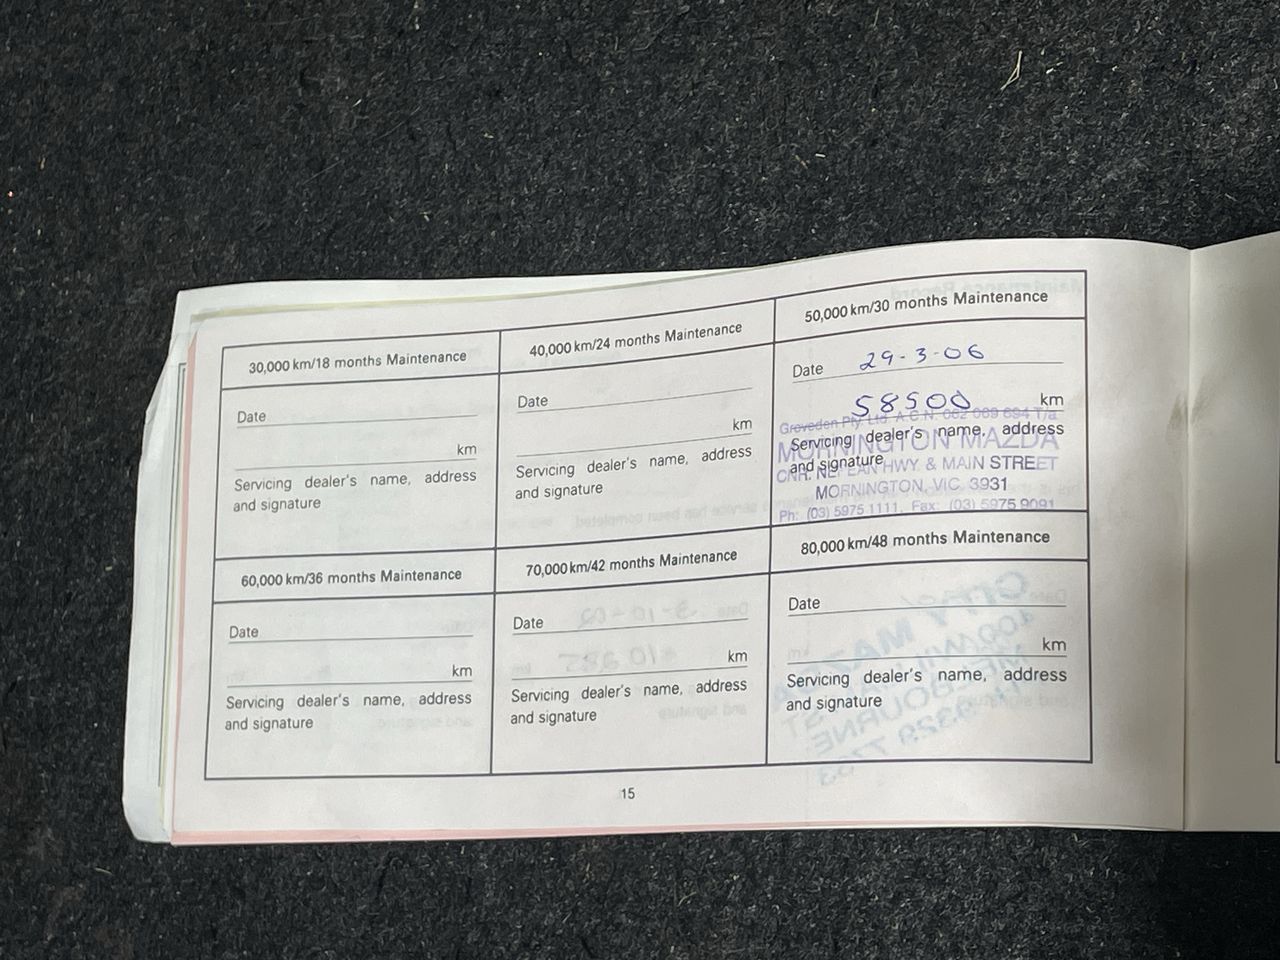 30,000 km/18 months Maintenance
Date
km
Servicing dealer's name, address
and signature
40,000 km/24 months Maintenance
Date
km
Servicing dealer's name, address
and signature
50,000 km/30 months Maintenance
Date 29-3-06
58500 km
Greveden Pty. Ltd. A.C.N. 062 069 694 T/a
Servicing dealer's name, address
MORNINGTON MAZDA
and signature
CNR. NEPEAN HWY. & MAIN STREET
MORNINGTON, VIC. 3931
Ph: (03) 5975 1111, Fax: (03) 5975 9091
60,000 km/36 months Maintenance
Date
km
Servicing dealer's name, address
and signature
70,000 km/42 months Maintenance
Date
km
Servicing dealer's name, address
and signature
80,000 km/48 months Maintenance
Date
km
Servicing dealer's name, address
and signature
15